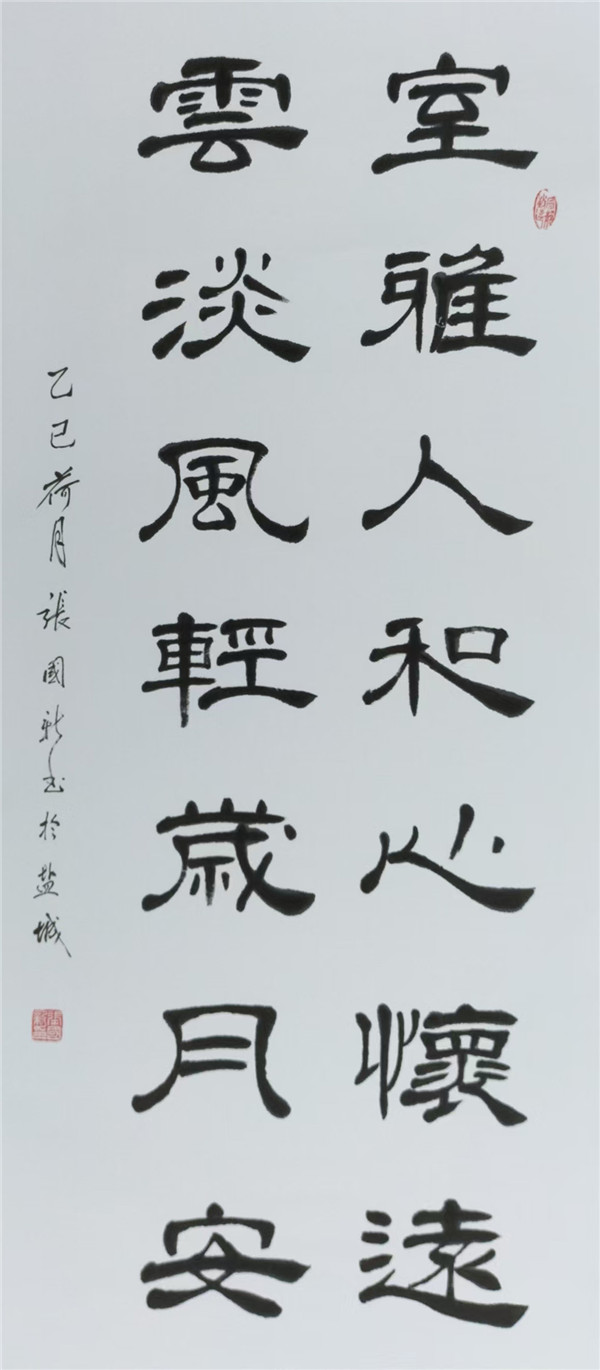 室雅人和心懷遠
雲淡風輕歲月安
乙巳荷月張國新書於盐城